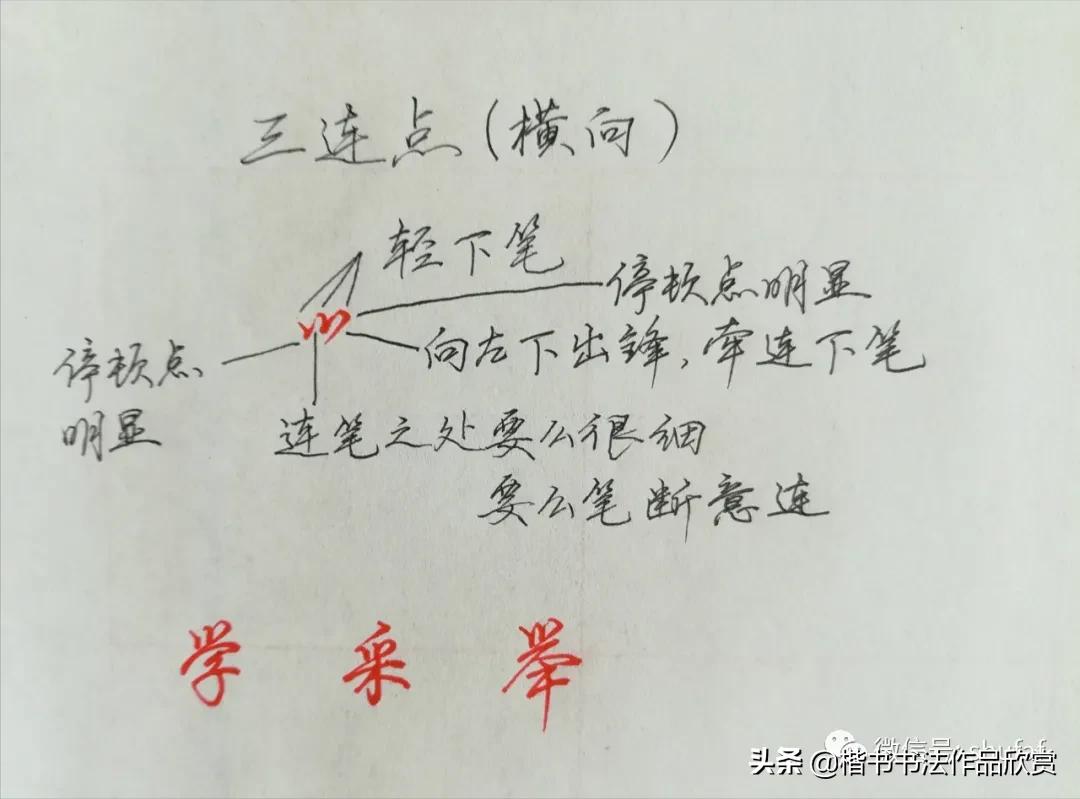 三连点(横向)
轻下笔
停顿点明显
向左下出锋,牵连下笔
停顿点
明显
连笔之处要么很细
要么笔断意连
学 采 举
微信号: shufaf
头条 @楷书书法作品欣赏